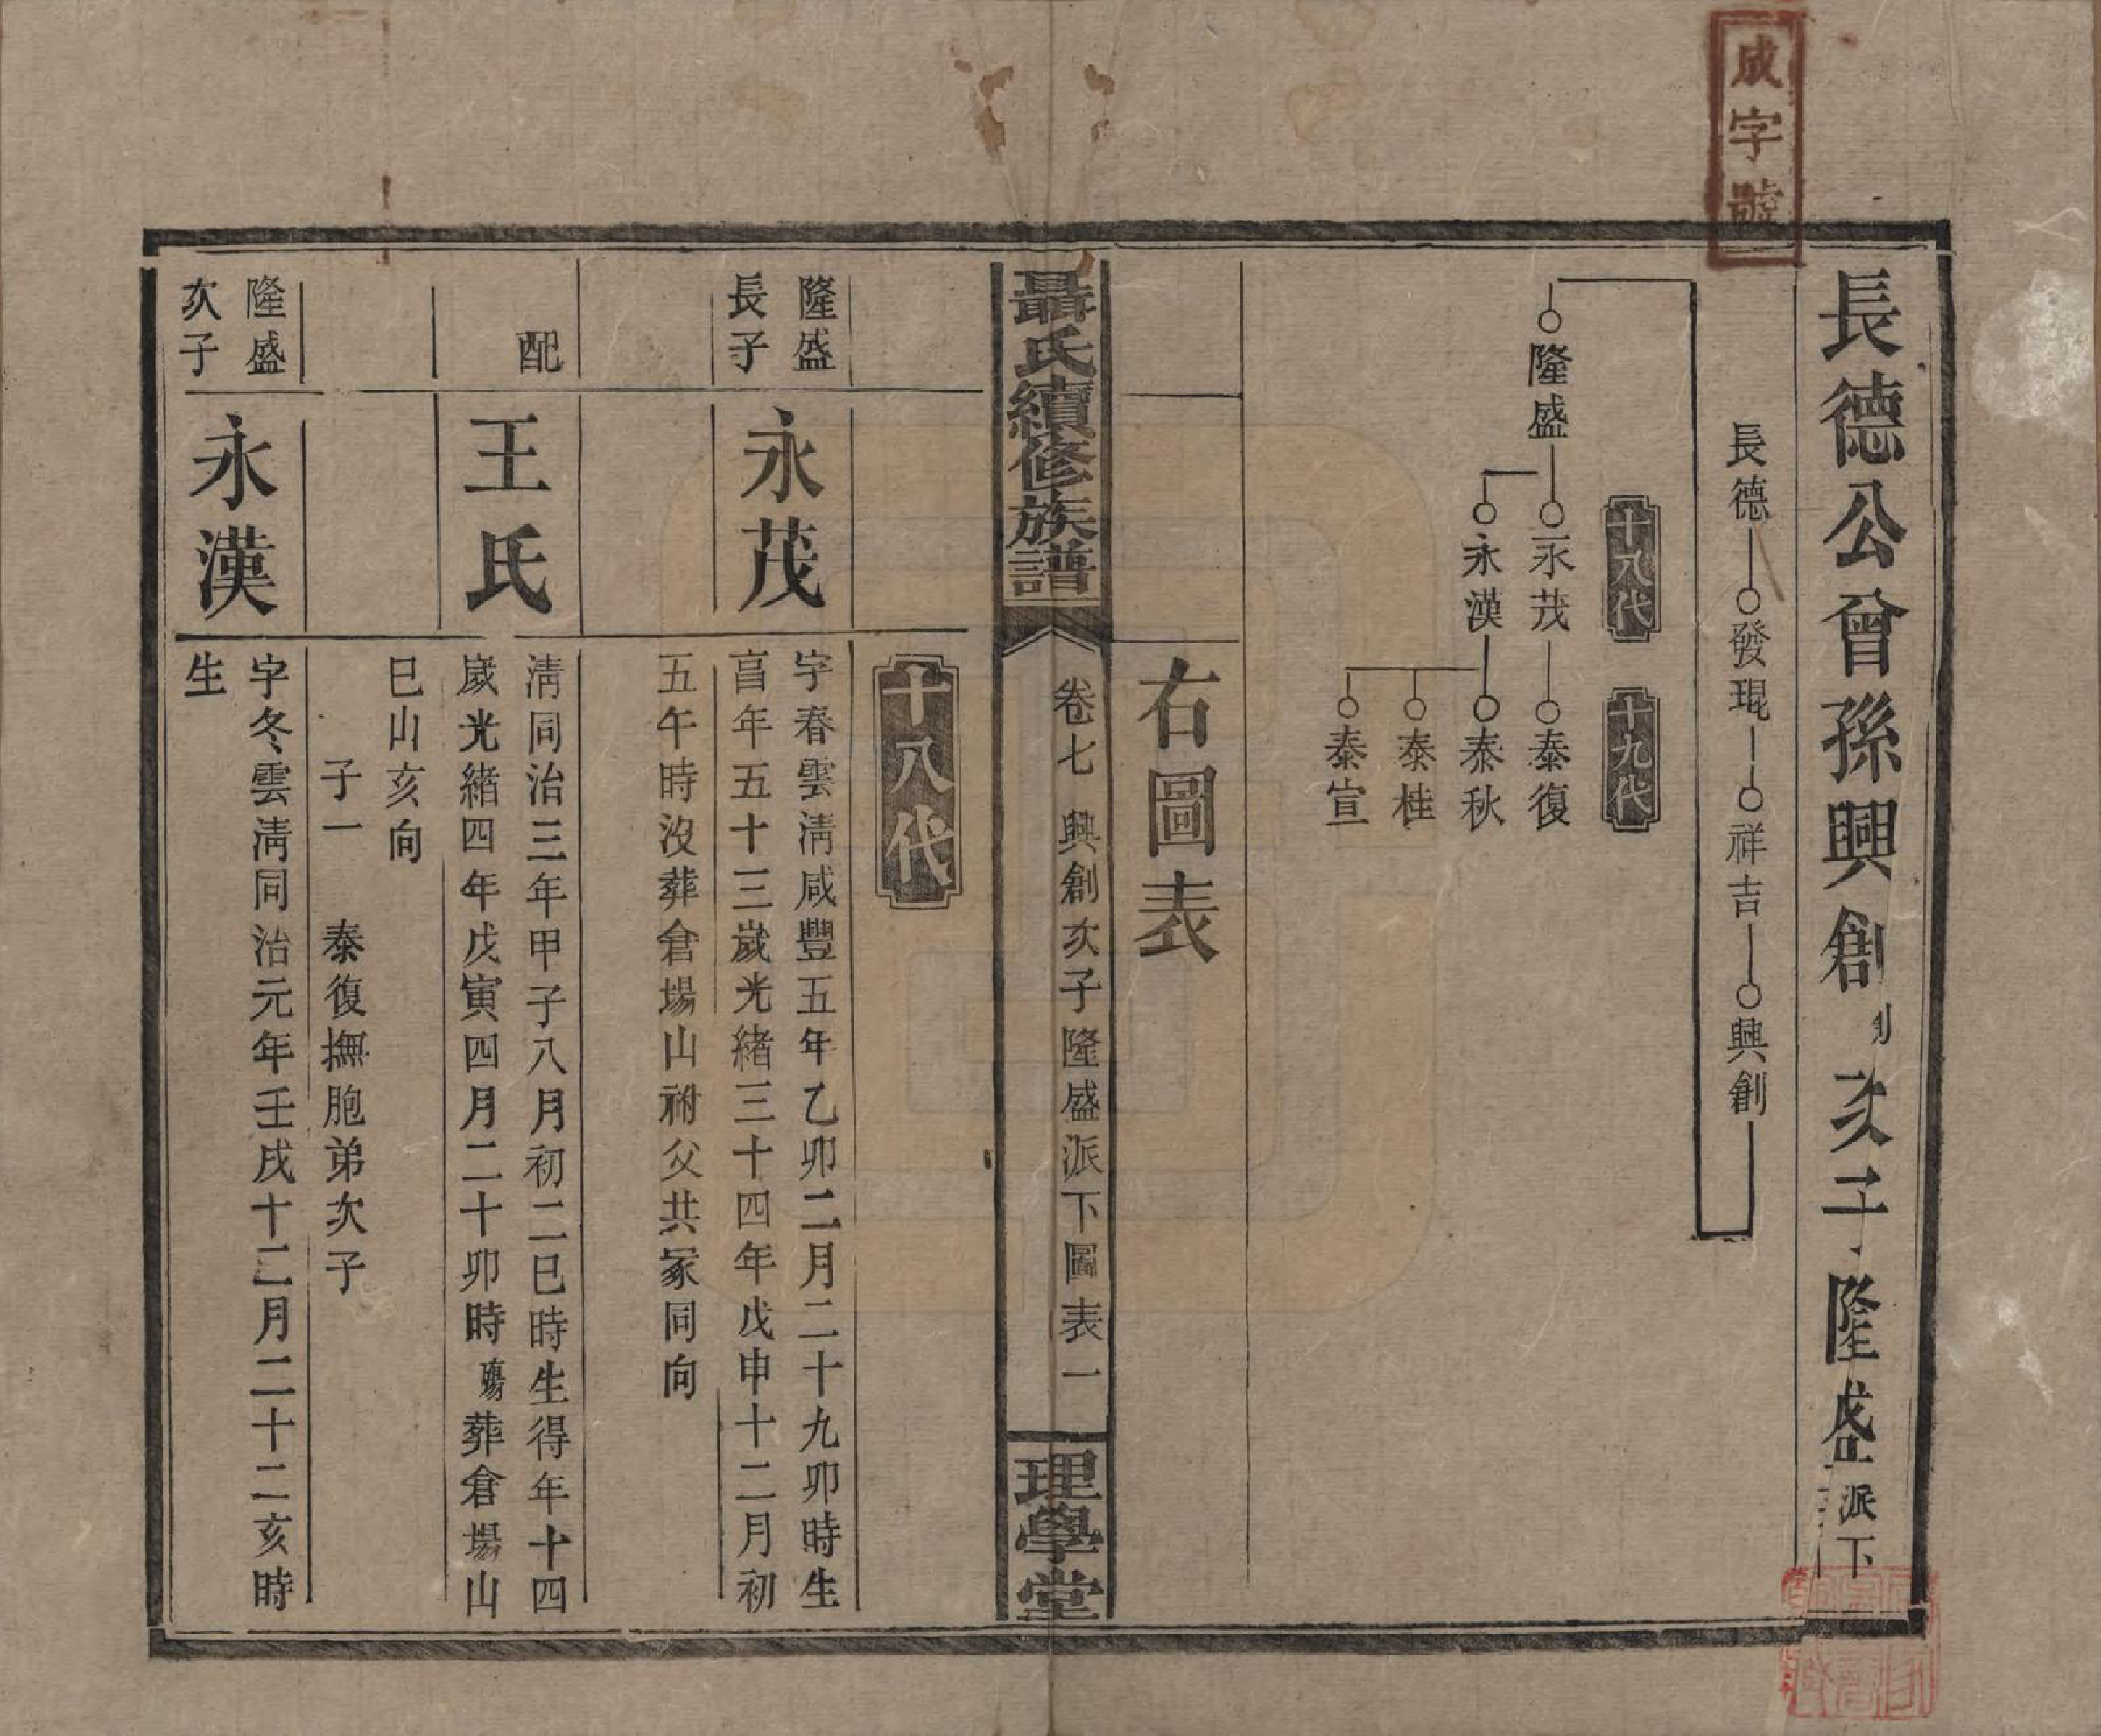 成字號
長德公曾孫興創次子隆盛派下
長德 發琨 祥吉 興創
十八代 十九代
隆盛 永茂 泰復
永漢 泰秋
泰桂
泰宣
右圖表
聶氏續修族譜
卷七 興創次子隆盛派下圖表一
理學堂
十八代
隆盛
長子
永茂
字春雲清咸豐五年乙卯二月二十九卯時生
亯年五十三歲光緒三十四年戊申十二月初
五午時沒葬倉場山祔父共冢同向
配
王氏
清同治三年甲子八月初二巳時生得年十四
歲光緒四年戊寅四月二十卯時殤葬倉場山
巳山亥向
子一 泰復撫胞弟次子
隆盛
次子
永漢
字冬雲清同治元年壬戌十二月二十二亥時
生